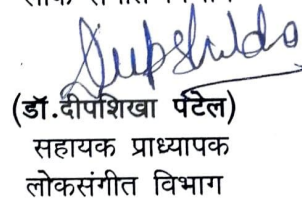 (डॉ.दीपशिखा पटेल)
सहायक प्राध्यापक
लोकसंगीत विभाग